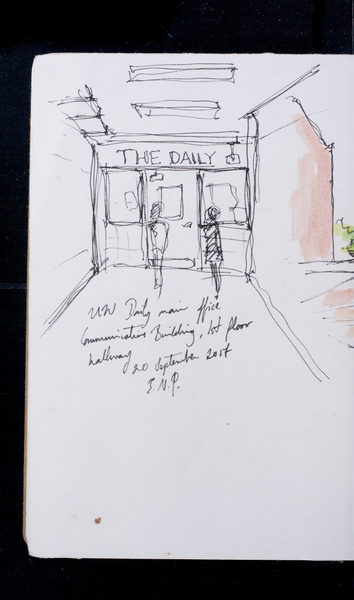 THE DAILY
UW Daily main office
Communications Building, 1st floor
hallway 20 September
S.N.P.